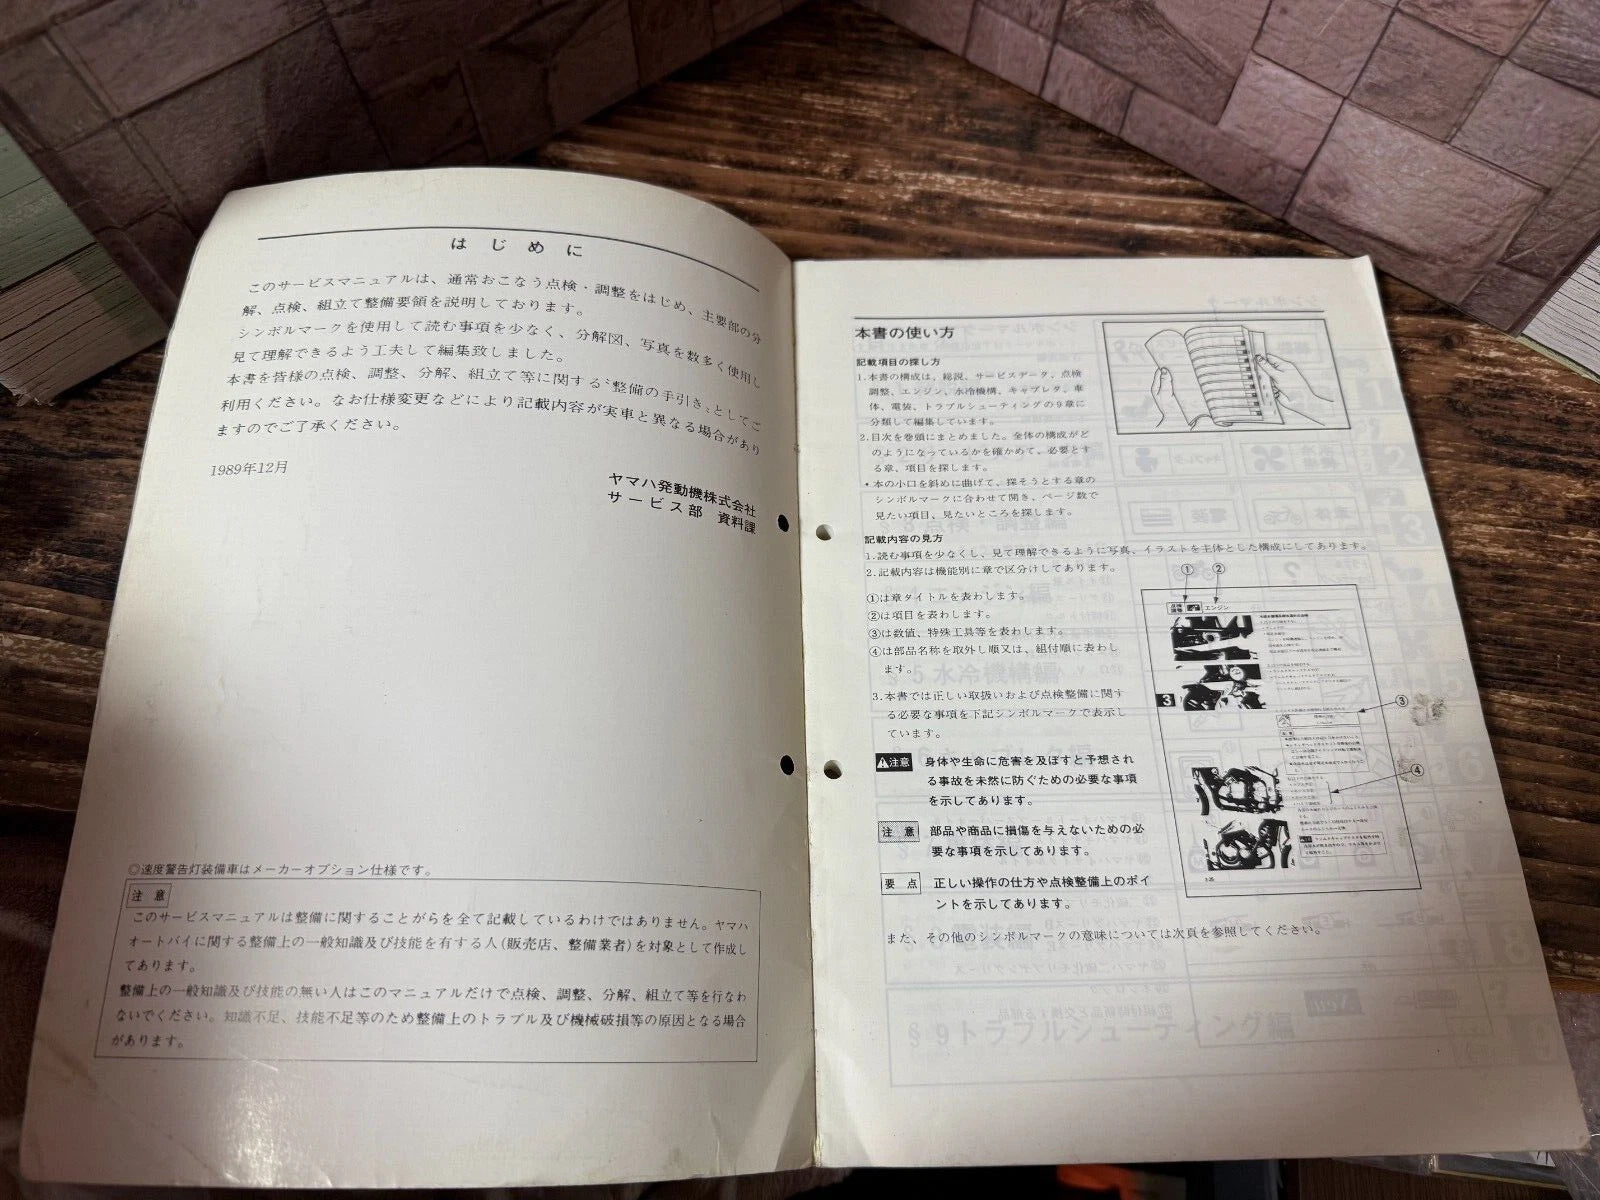 はじめに
このサービスマニュアルは、通常おこなう点検・調整をはじめ、主要部の分
解、点検、組立て整備要領を説明しております。
シンボルマークを使用して読む事項を少なく、分解図、写真を数多く使用し
見て理解できるよう工夫して編集致しました。
本書を皆様の点検、調整、分解、組立て等に関する〝整備の手引き〟としてご
利用ください。なお仕様変更などにより記載内容が実車と異なる場合があり
ますのでご了承ください。
1989年12月
ヤマハ発動機株式会社
サービス部 資料課
◎速度警告灯装備車はメーカーオプション仕様です。
注意
このサービスマニュアルは整備に関することがらを全て記載しているわけではありません。ヤマハ
オートバイに関する整備上の一般知識及び技能を有する人(販売店、整備業者)を対象として作成し
てあります。
整備上の一般知識及び技能の無い人はこのマニュアルだけで点検、調整、分解、組立て等を行なわ
ないでください。知識不足、技能不足等のため整備上のトラブル及び機械破損等の原因となる場合
があります。
本書の使い方
記載項目の探し方
1.本書の構成は、総説、サービスデータ、点検
調整、エンジン、水冷機構、キャブレタ、車
体、電装、トラブルシューティングの9章に
分類して編集しています。
2.目次を巻頭にまとめました。全体の構成がど
のようになっているかを確かめて、必要とす
る章、項目を探します。
・本の小口を斜めに曲げて、探そうとする章の
シンボルマークに合わせて開き、ページ数で
見たい項目、見たいところを探します。
記載内容の見方
1.読む事項を少なくし、見て理解できるように写真、イラストを主体とした構成にしてあります。
2.記載内容は機能別に章で区分けしてあります。
①は章タイトルを表わします。
②は項目を表わします。
③は数値、特殊工具等を表わします。
④は部品名称を取外し順又は、組付順に表わし
ます。
3.本書では正しい取扱いおよび点検整備に関す
る必要な事項を下記シンボルマークで表示し
ています。
注意 身体や生命に危害を及ぼすと予想され
る事故を未然に防ぐための必要な事項
を示してあります。
注意 部品や商品に損傷を与えないための必
要な事項を示してあります。
要点 正しい操作の仕方や点検整備上のポイ
ントを示してあります。
また、その他のシンボルマークの意味については次頁を参照してください。
① ②
点検調整 エンジン
3
③
④